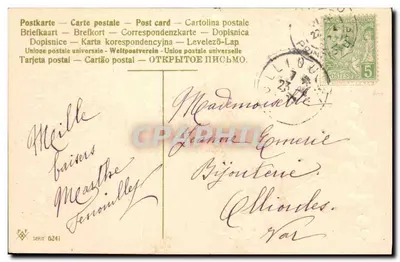 Postkarte - Carte postale - Post card - Cartolina postale
Briefkaart - Brefkort - Correspondenzkarte - Dopisnica
Dopisnice - Karta korespondencyjna - Levelező-Lap
Unione postale universelle - Weltpostverein - Union postale universelle
Tarjeta postal - Cartão postal - ОТКРЫТОЕ ПИСЬМО.
5
Mademoiselle
Jeanne Emerie
Bijouterie
Ollioules
Var
Mille
baisers
Marthe
Fenouilley
Serie 6241
CPAphil